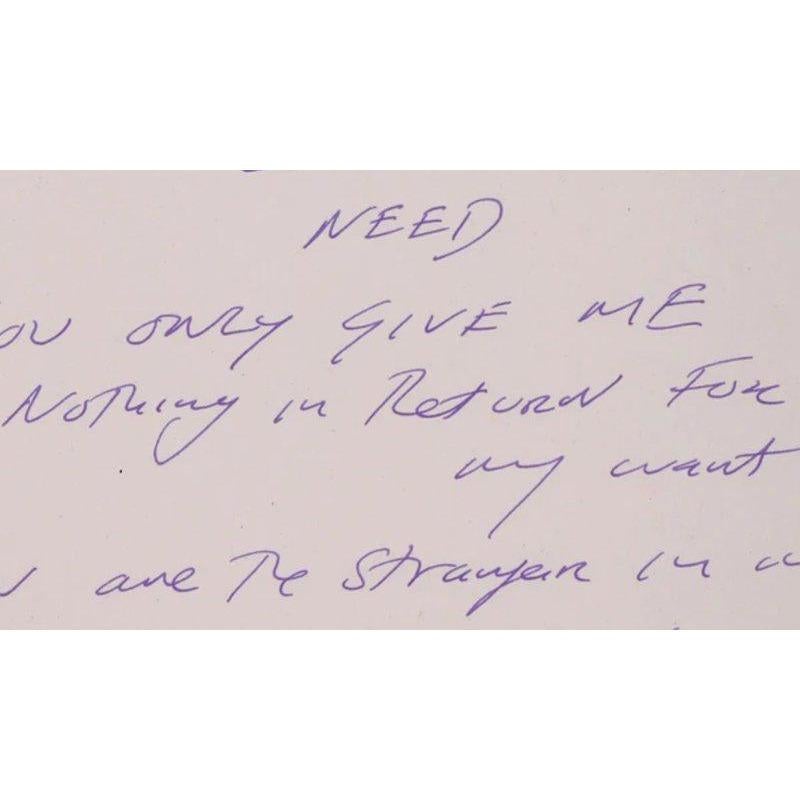 NEED
OU ONLY GIVE ME
Nothing in Return For
my want
are The Stranger in